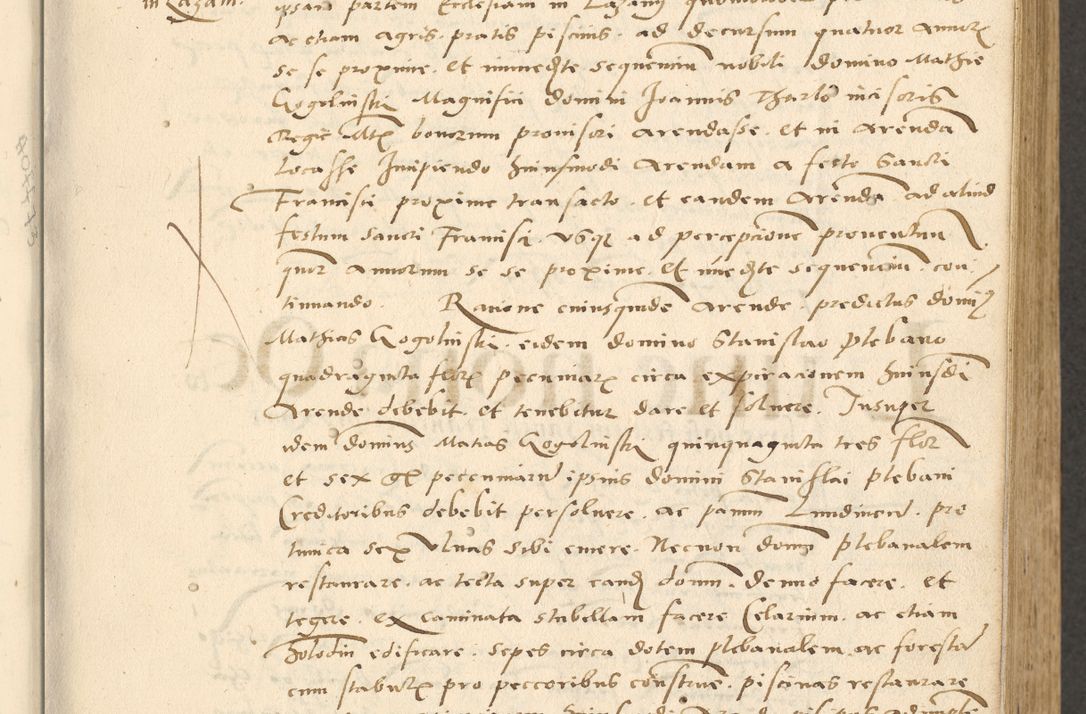 in Lazani
ipsam partem Ecclesiam in Lazani
ac etiam agris pratis piscinis ad decursum quatuor annorum
se se proxime et immediate sequencium nobili domino Mathie
Gogolinski Magnifici domini Joannis Tharlo incisoris
Regie Mtis bonorum provisori arendasse et in arendam
locasse Incipiendo huiusmodi arendam a festo Sancti
Francisci proxime transacto et eandem arendam ad aliud
festum sancti Francisci usque ad percepcionem proventuum
quatuor annorum se se proxime et immediate sequencium con
tinuando Racione cuiusquidem arende predictus dominus
Mathias Gogolinski eidem domino Stanislao plebano
quadraginta florenos pecuniarum circa expiracionem huiusmodi
arende debebit et tenebitur dare et solvere Insuper
idem dominus Matias Gogolinski quinquaginta tres flor
et sex gr pecuniarum ipsius domini Stanislai plebani
Creditoribus debebit persolvere ac panni Lundinensi pro
tunica sex ulnas sibi emere Necnon domum plebanalem
restaurare ac tecta super eandem domum denuo facere et
tegere ex caminata stubellam facere Celarium ac etiam
edificare sepes circa dotem plebanalem ac
cum stabulum pro peccoribus construere piscinas restaurare